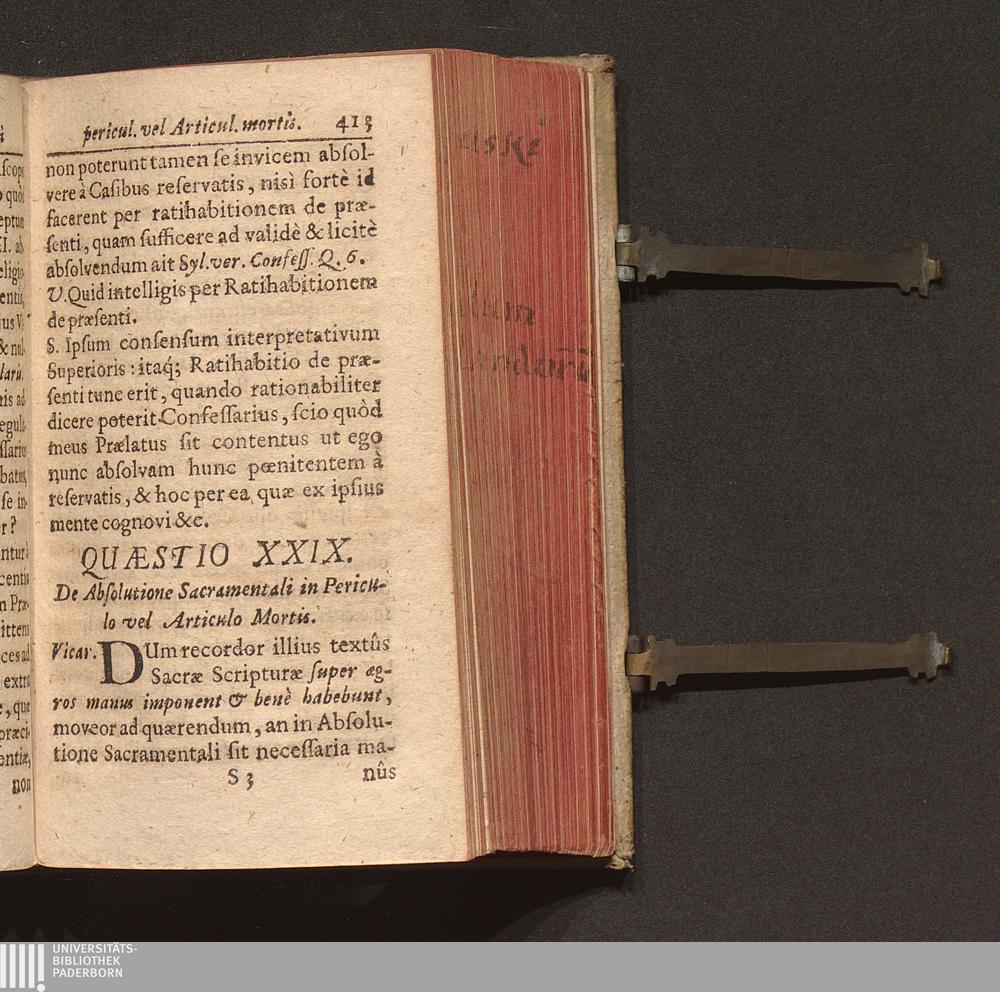 pericul. vel Articul. mortis. 413
non poterunt tamen se invicem absol-
vere à Casibus reservatis, nisì fortè id
facerent per ratihabitionem de præ-
senti, quam sufficere ad validè & licitè
absolvendum ait Syl. ver. Confess. Q. 6.
V. Quid intelligis per Ratihabitionem
de præsenti.
S. Ipsum consensum interpretativum
Superioris: itaq́; Ratihabitio de præ-
senti tunc erit, quando rationabiliter
dicere poterit Confessarius, scio quòd
meus Prælatus sit contentus ut ego
nunc absolvam hunc pœnitentem à
reservatis, & hoc per ea quæ ex ipsius
mente cognovi &c.
QUÆSTIO XXIX.
De Absolutione Sacramentali in Pericu-
lo vel Articulo Mortis.
Vicar. DUm recordor illius textûs
Sacræ Scripturæ super æg-
ros manus imponent & benè habebunt,
moveor ad quærendum, an in Absolu-
tione Sacramentali sit necessaria ma-
S 3 nûs
non
UNIVERSITÄTS-
BIBLIOTHEK
PADERBORN